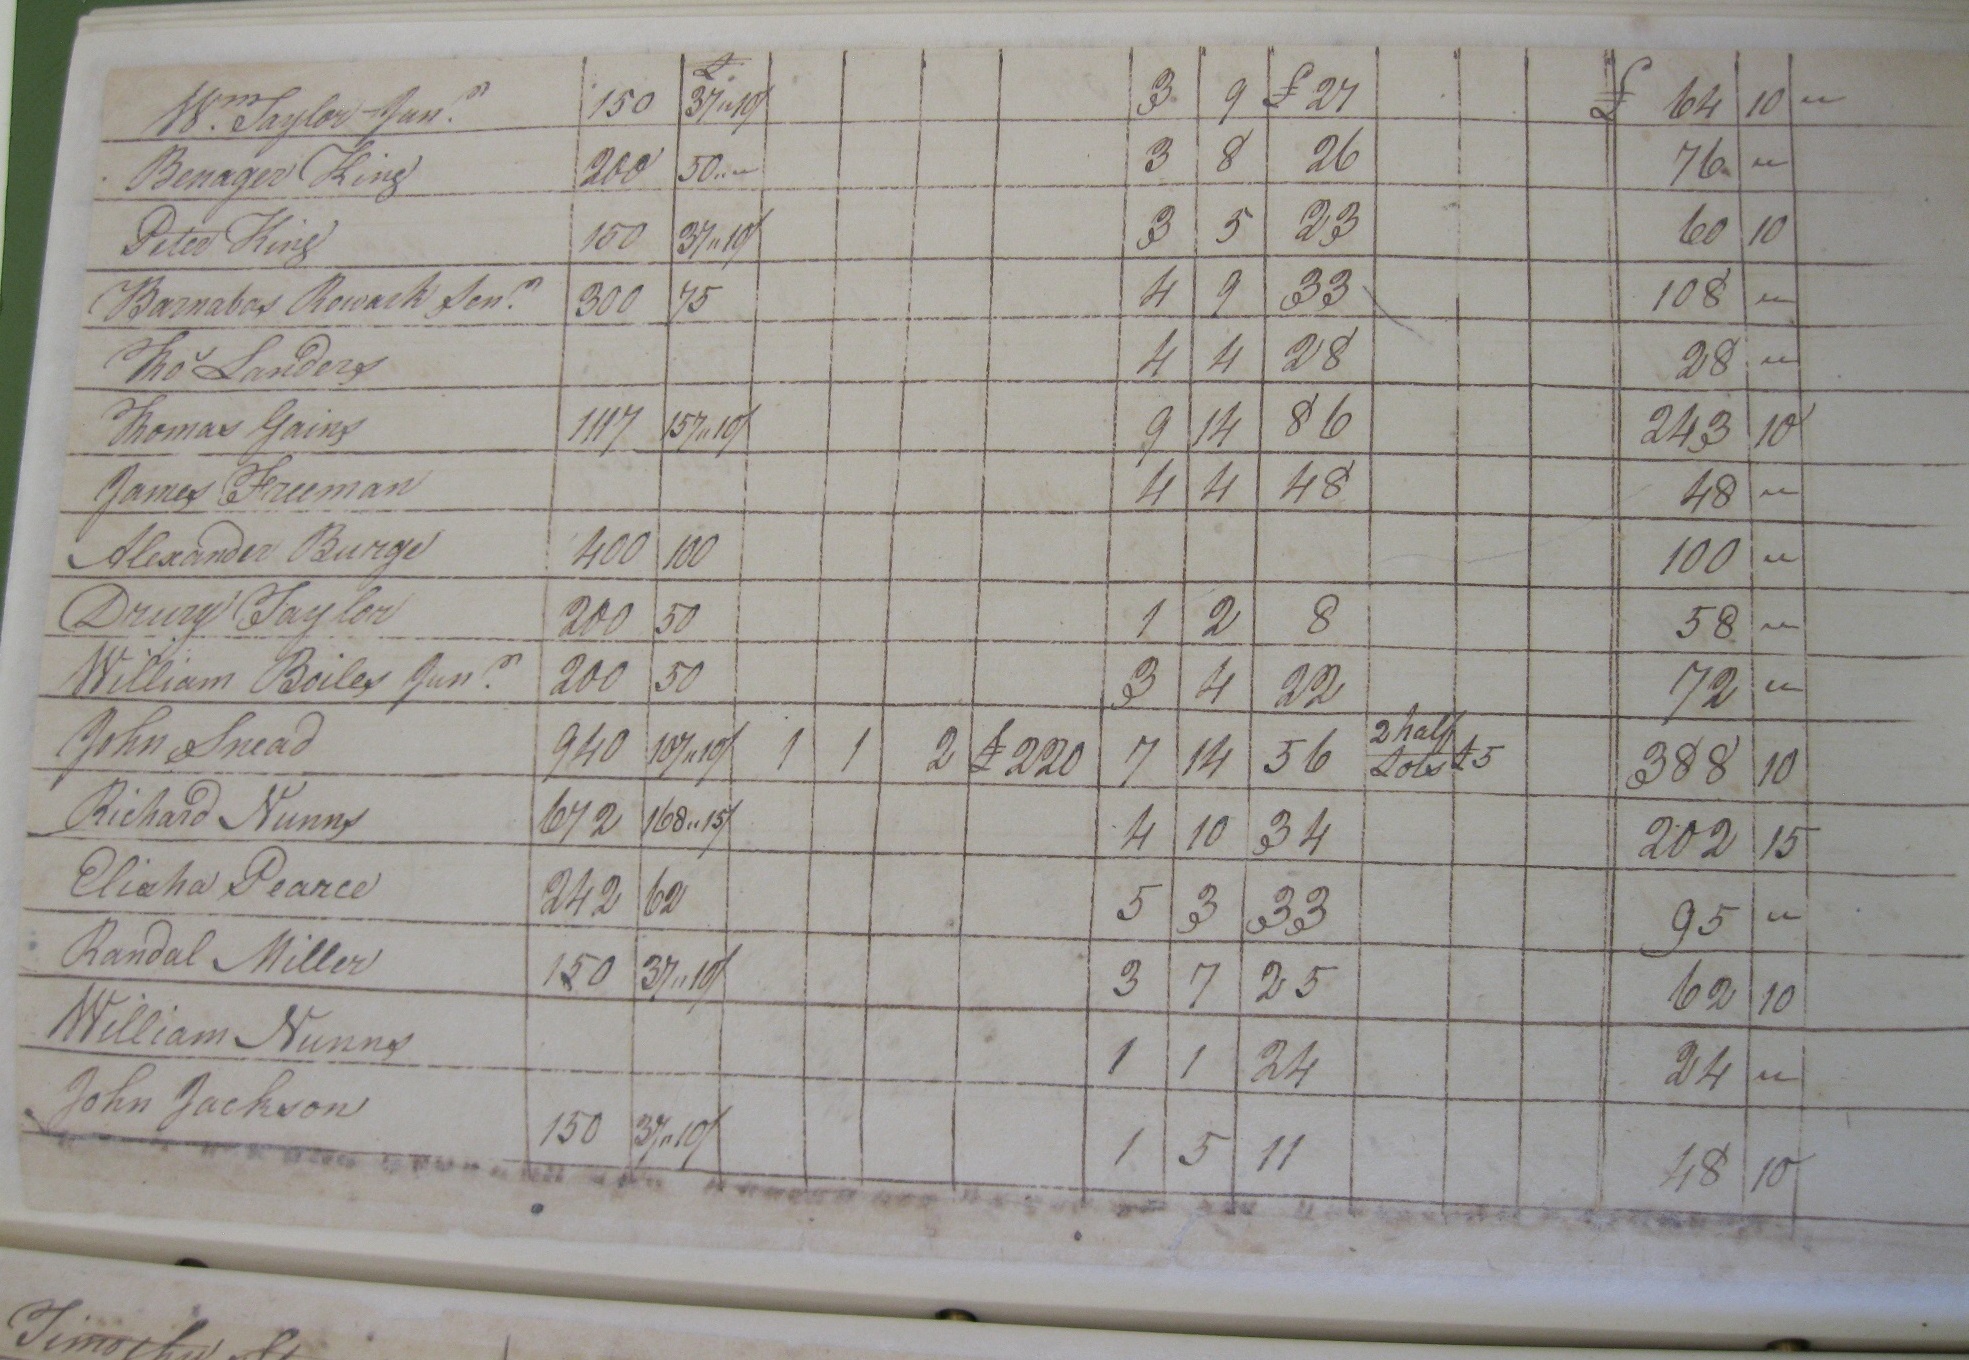 Wm. Taylor Junr. 150 £ 37"10/ 3 9 £ 27 £ 64 10 "
Benager King 200 50"" 3 8 26 76 "
Peter King 150 37"10/ 3 5 23 60 10
Barnabas Rowark Senr. 300 75 4 9 33 108 "
Tho Landers 4 4 28 28 "
Thomas Gains 1117 157"10/ 9 14 86 243 10
James Freeman 4 4 48 48 "
Alexander Burge 400 100 100 "
Drury Taylor 200 50 1 2 8 58 "
William Boiles Junr. 200 50 3 4 22 72 "
John Snead 940 107"10/ 1 1 2 £ 220 7 14 56 2 half Lots £5 388 10
Richard Nunns 672 168"15/ 4 10 34 202 15
Elisha Pearce 242 62 5 3 33 95 "
Randal Miller 150 37"10/ 3 7 25 62 10
William Nunns 1 1 24 24 "
John Jackson 150 37"10/ 1 5 11 48 10
Timothy